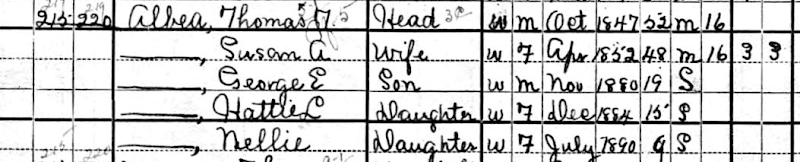 215 220 Albea, Thomas Head W M Oct 1847 52 M 16
——, Susan A Wife W F Apr 1852 48 M 16 3 3
——, George E Son W M Nov 1880 19 S
——, Hattie L Daughter W F Dec 1884 15 S
——, Nellie Daughter W F July 1890 9 S